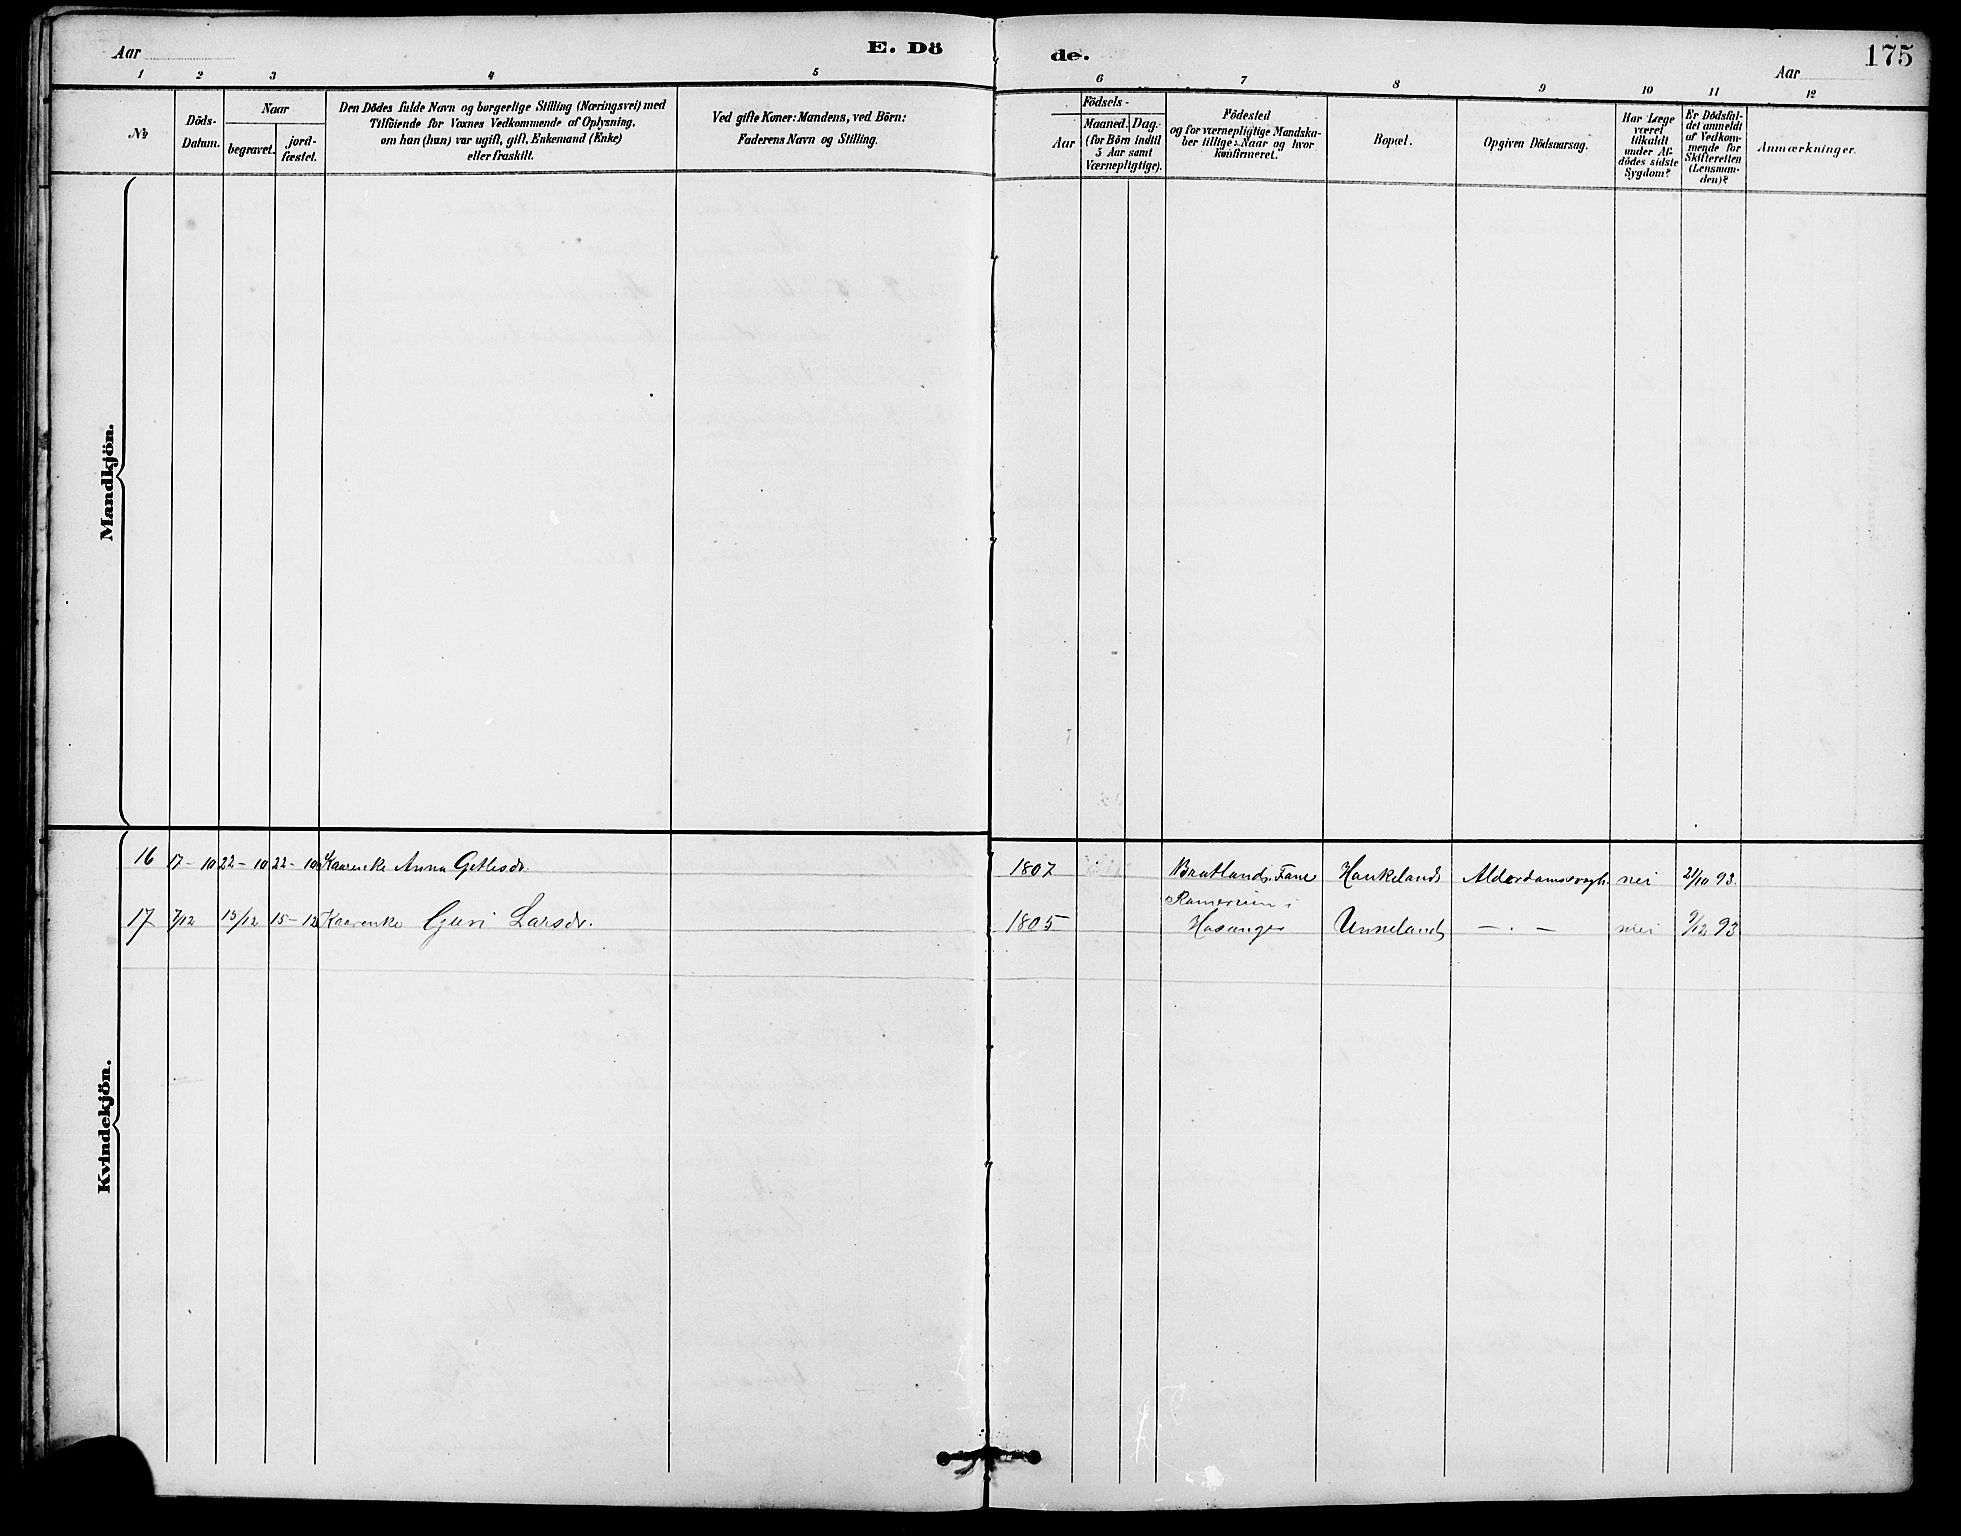 Aar
E. Dö
de.
Aar
175
1 2 3 4 5 6 7 8 9 10 11 12
№
Döds-
Datum.
Naar
begravet.
jord-
fæstet.
Den Dödes fulde Navn og borgerlige Stilling (Næringsvei) med
Tilföiende for Voxnes Vedkommende af Oplysning,
om han (hun) var ugift, gift, Enkemand (Enke)
eller fraskilt.
Ved gifte Koner: Mandens, ved Börn:
Faderens Navn og Stilling.
Födsels-
Aar
Maaned. Dag.
(for Börn indtil
5 Aar samt
Værnepligtige).
Födested
og for værnepligtige Mandska-
ber tillige: Naar og hvor
konfirmeret.
Bopæl.
Opgiven Dödsaarsag.
Har Læge
været
tilkaldt
under Af-
dödes sidste
Sygdom?
Er Dödsfal-
det anmeldt
af Vedkom-
mende for
Skifteretten
(Lensman-
den)?
Anmærkninger.
Mandkjön.
Kvindekjön.
16 17-10 22-10 22-10 Kaarenke Anna Getlesdr. 1807 Bratland, Fane Haukeland Alderdomssvagh. nei 21/10 93.
17 7/12 15/12 15-12 Kaarenke Guri Larsdr. 1805
Hosanger Unneland — . — nei 9/12 93